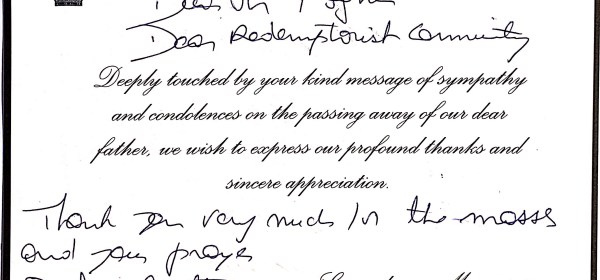 Dear
Dear Redemptorist Community
Deeply touched by your kind message of sympathy
and condolences on the passing away of our dear
father, we wish to express our profound thanks and
sincere appreciation.
Thank you very much for the masses
and your prayes